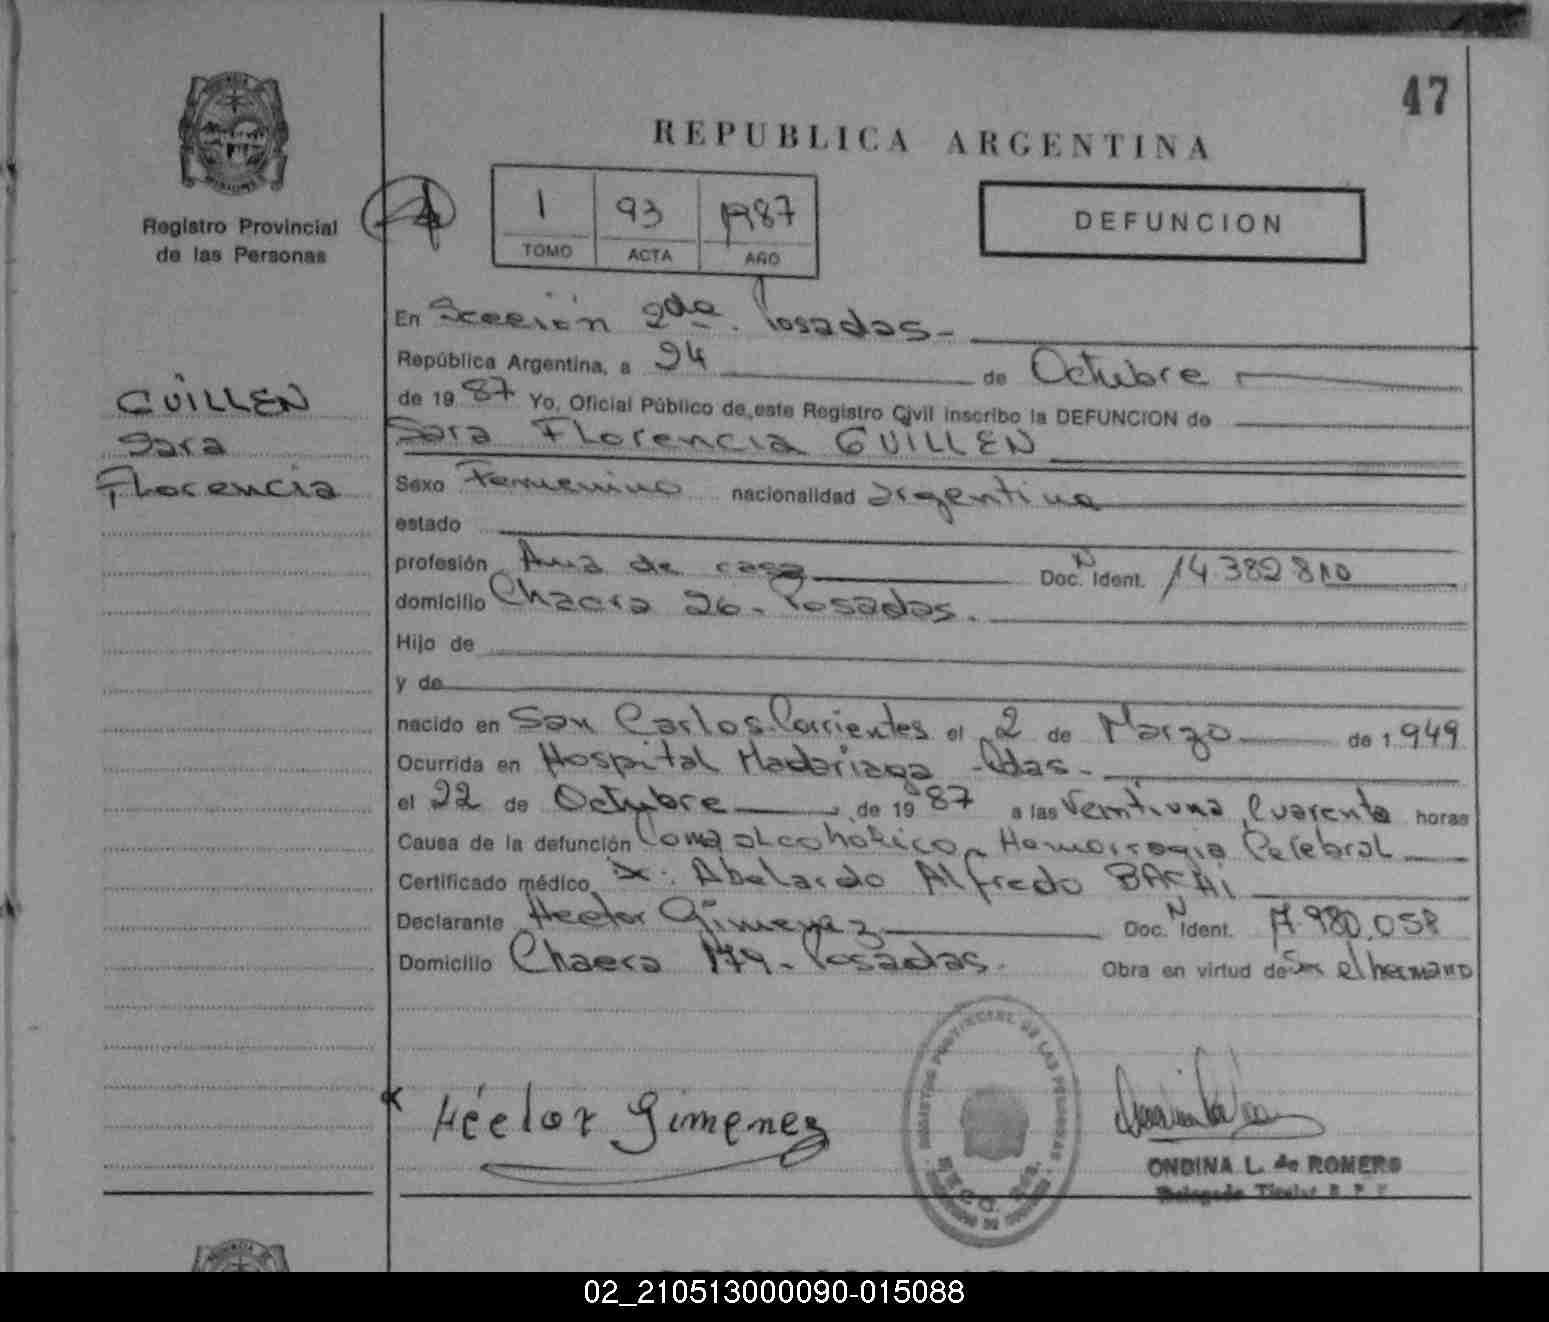 47
REPUBLICA ARGENTINA
Registro Provincial
de las Personas
1 93 1987
TOMO ACTA AÑO
DEFUNCION
En Sección 2da. Posadas-
República Argentina, a 24 de Octubre
de 19 87 Yo, Oficial Público de este Registro Civil inscribo la DEFUNCION de
GUILLEN
Sara
Florencia
Sara Florencia GUILLEN
Sexo Femenino nacionalidad argentina
estado
profesión Ama de casa Doc. N Ident. 14.382.810
domicilio Chacra 26- Posadas.
Hijo de
y de
nacido en San Carlos-Corrientes el 2 de Marzo de 1.949
Ocurrida en Hospital Madariaga -Pdas-
el 22 de Octubre de 19 87 a las Veintiuna, Cuarenta horas
Causa de la defunción Coma alcoholico- Hemorragia Cerebral
Certificado médico Dr. Abelardo Alfredo BACHI
Declarante Hector Gimenez Doc. N Ident. 17.980.058
Domicilio Chacra 179- Posadas. Obra en virtud de Ser el hermano
Héctor Gimenez
REGISTRO PROVINCIAL DE LAS PERSONAS
SECC. 2da.
ONDINA L. de ROMERO
Delegada Titular R. P. P.
02_210513000090-015088